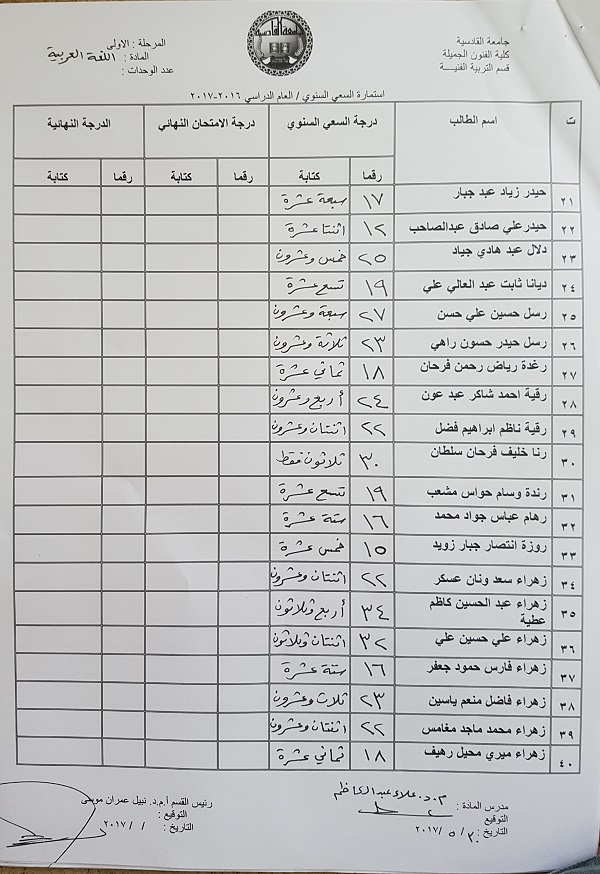 جامعة القادسية
كلية الفنون الجميلة
قسم التربية الفنيـــة
المرحلة : الاولى
المادة : اللغة العربية
عدد الوحدات :
استمارة السعي السنوي / العام الدراسي ٢٠١٦-٢٠١٧
ت اسم الطالب درجة السعي السنوي درجة الامتحان النهائي الدرجة النهائية
رقما كتابة رقما كتابة رقما كتابة
٢١ حيدر زياد عبد جبار ١٧ سبعة عشرة
٢٢ حيدرعلي صادق عبدالصاحب ١٢ اثنتا عشرة
٢٣ دلال عبد هادي جياد ٢٥ خمس وعشرون
٢٤ ديانا ثابت عبد العالي علي ١٩ تسع عشرة
٢٥ رسل حسين علي حسن ٢٧ سبعة وعشرون
٢٦ رسل حيدر حسون راهي ٢٣ ثلاثة وعشرون
٢٧ رغدة رياض رحمن فرحان ١٨ ثماني عشرة
٢٨ رقية احمد شاكر عبد عون ٢٤ أربع وعشرون
٢٩ رقية ناظم ابراهيم فضل ٢٢ اثنتان وعشرون
٣٠ رنا خليف فرحان سلطان ٣٠ ثلاثون فقط
٣١ رندة وسام حواس مشعب ١٩ تسع عشرة
٣٢ رهام عباس جواد محمد ١٦ ستة عشرة
٣٣ روزة انتصار جبار زويد ١٥ خمس عشرة
٣٤ زهراء سعد ونان عسكر ٢٢ اثنتان وعشرون
٣٥ زهراء عبد الحسين كاظم عطية ٣٤ أربع وثلاثون
٣٦ زهراء علي حسين علي ٣٢ اثنتان وثلاثون
٣٧ زهراء فارس حمود جعفر ١٦ ستة عشرة
٣٨ زهراء فاضل منعم ياسين ٢٣ ثلاث وعشرون
٣٩ زهراء محمد ماجد مغامس ٢٢ اثنتان وعشرون
٤٠ زهراء ميري محيل رهيف ١٨ ثماني عشرة
م.د. علاء عبد الكاظم
مدرس المادة :
التوقيع
التاريخ : ٣٠ / ٥ / ٢٠١٧
رئيس القسم أ.م.د. نبيل عمران موسى
التوقيع :
التاريخ : / / ٢٠١٧